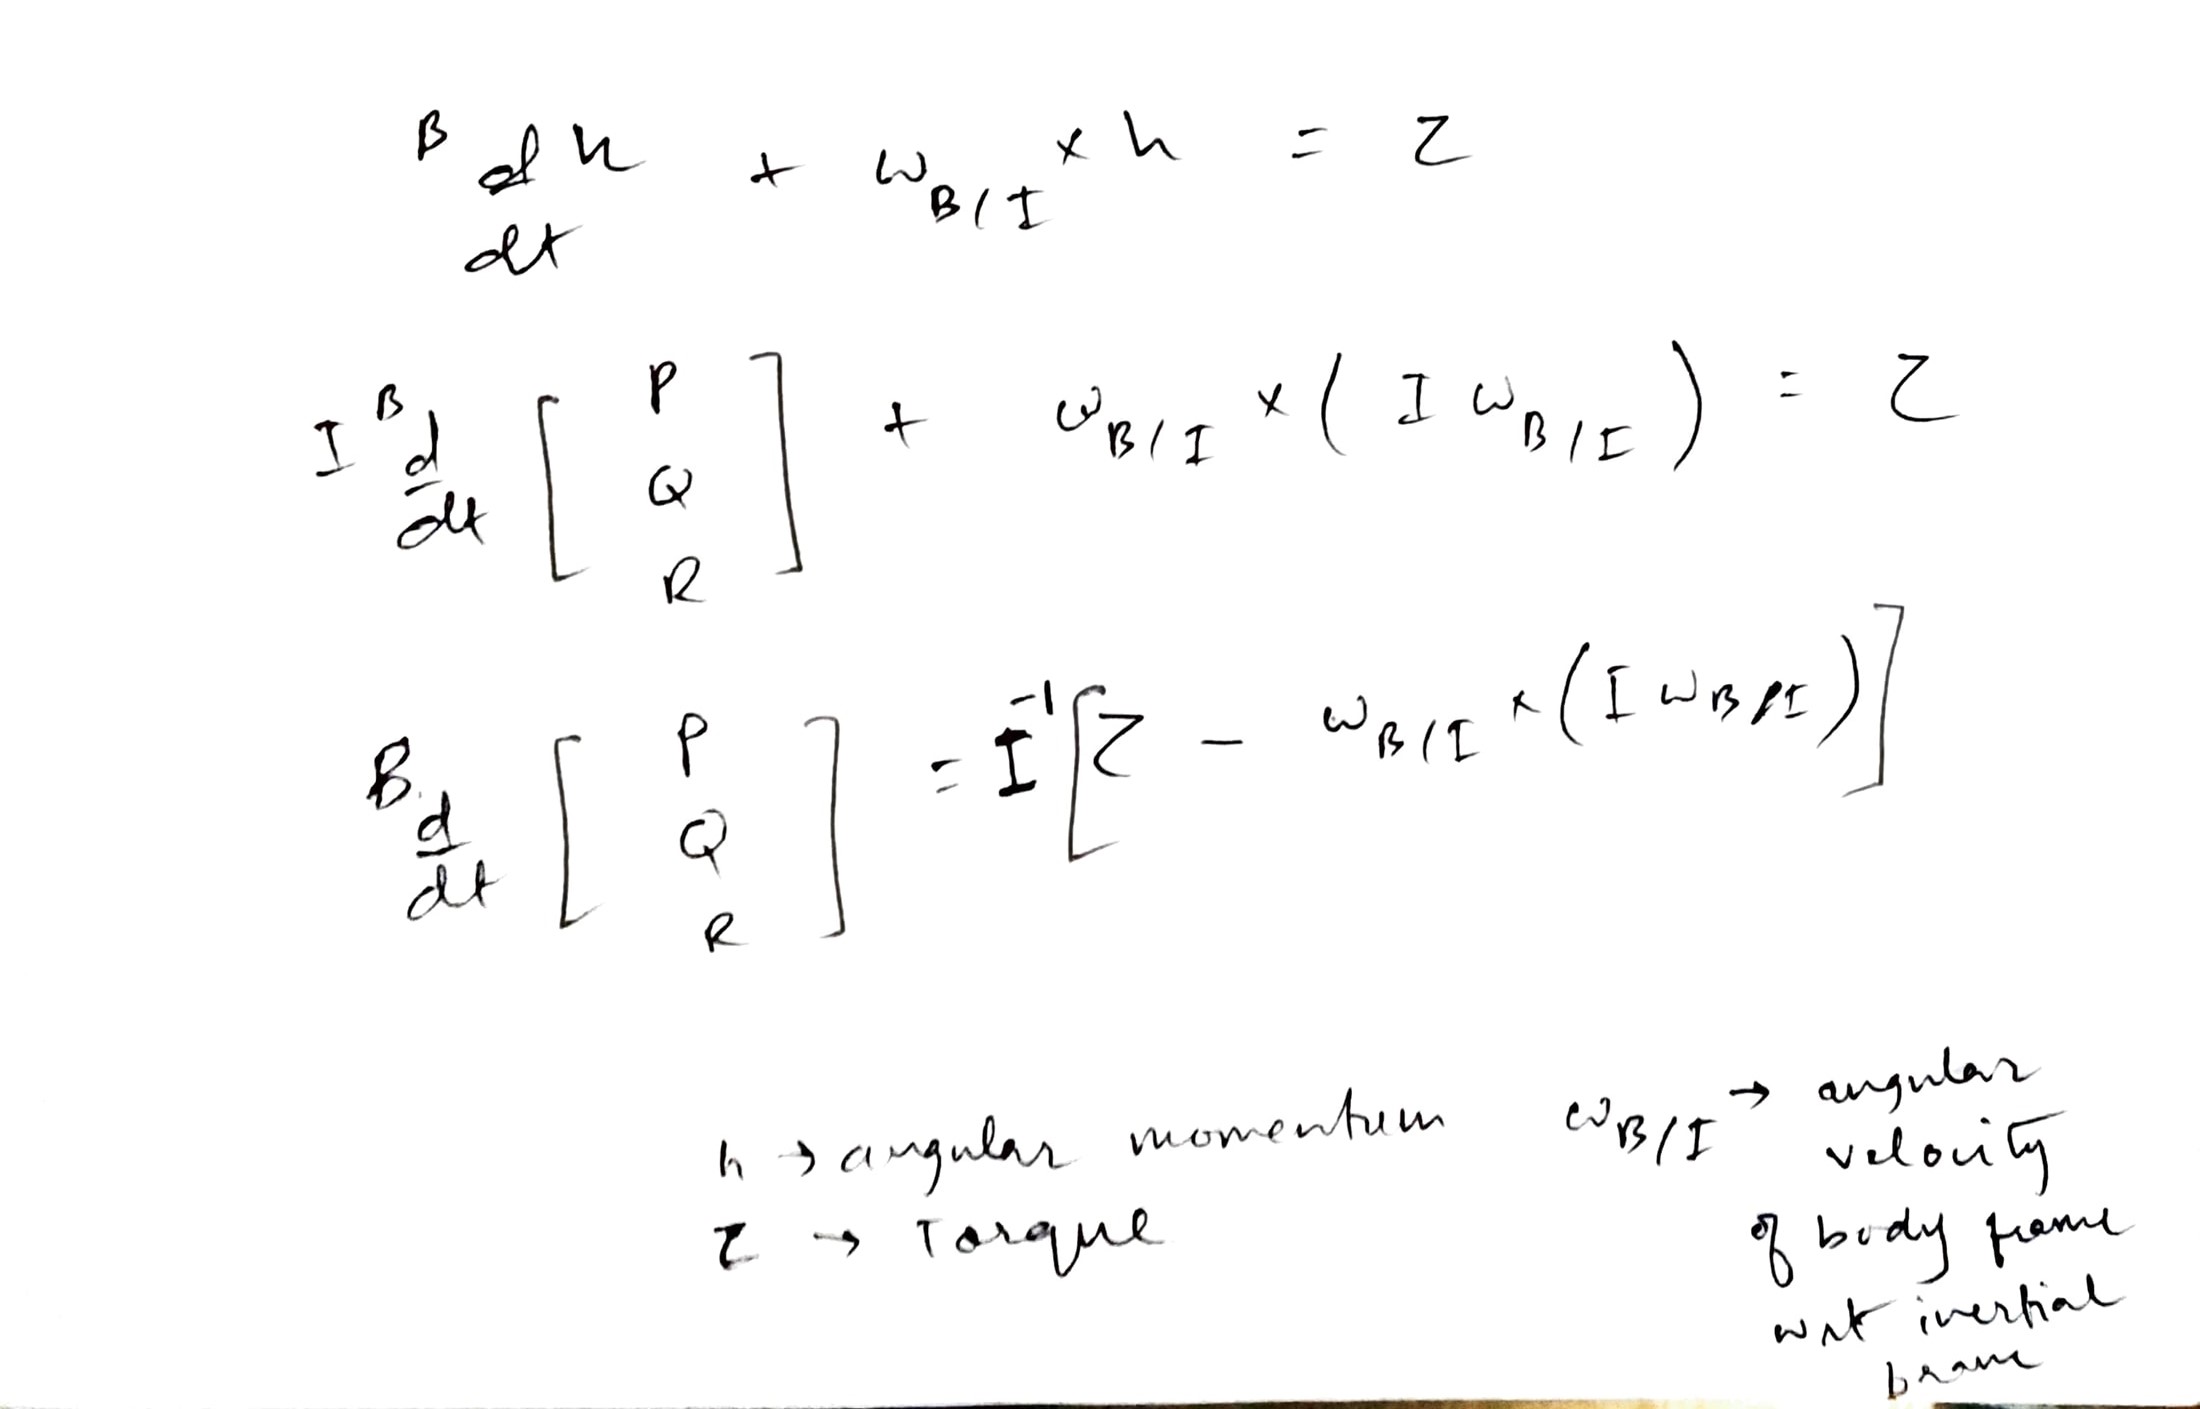 B d h + ω B/I × h = τ
dt
I B d [ P Q R ] + ω B/I × ( I ω B/I ) = τ
dt
B d [ P Q R ] = I⁻¹ [ τ - ω B/I × ( I ω B/I ) ]
dt
h → angular momentum
τ → Torque
ω B/I → angular
velocity
of body frame
wrt inertial
frame